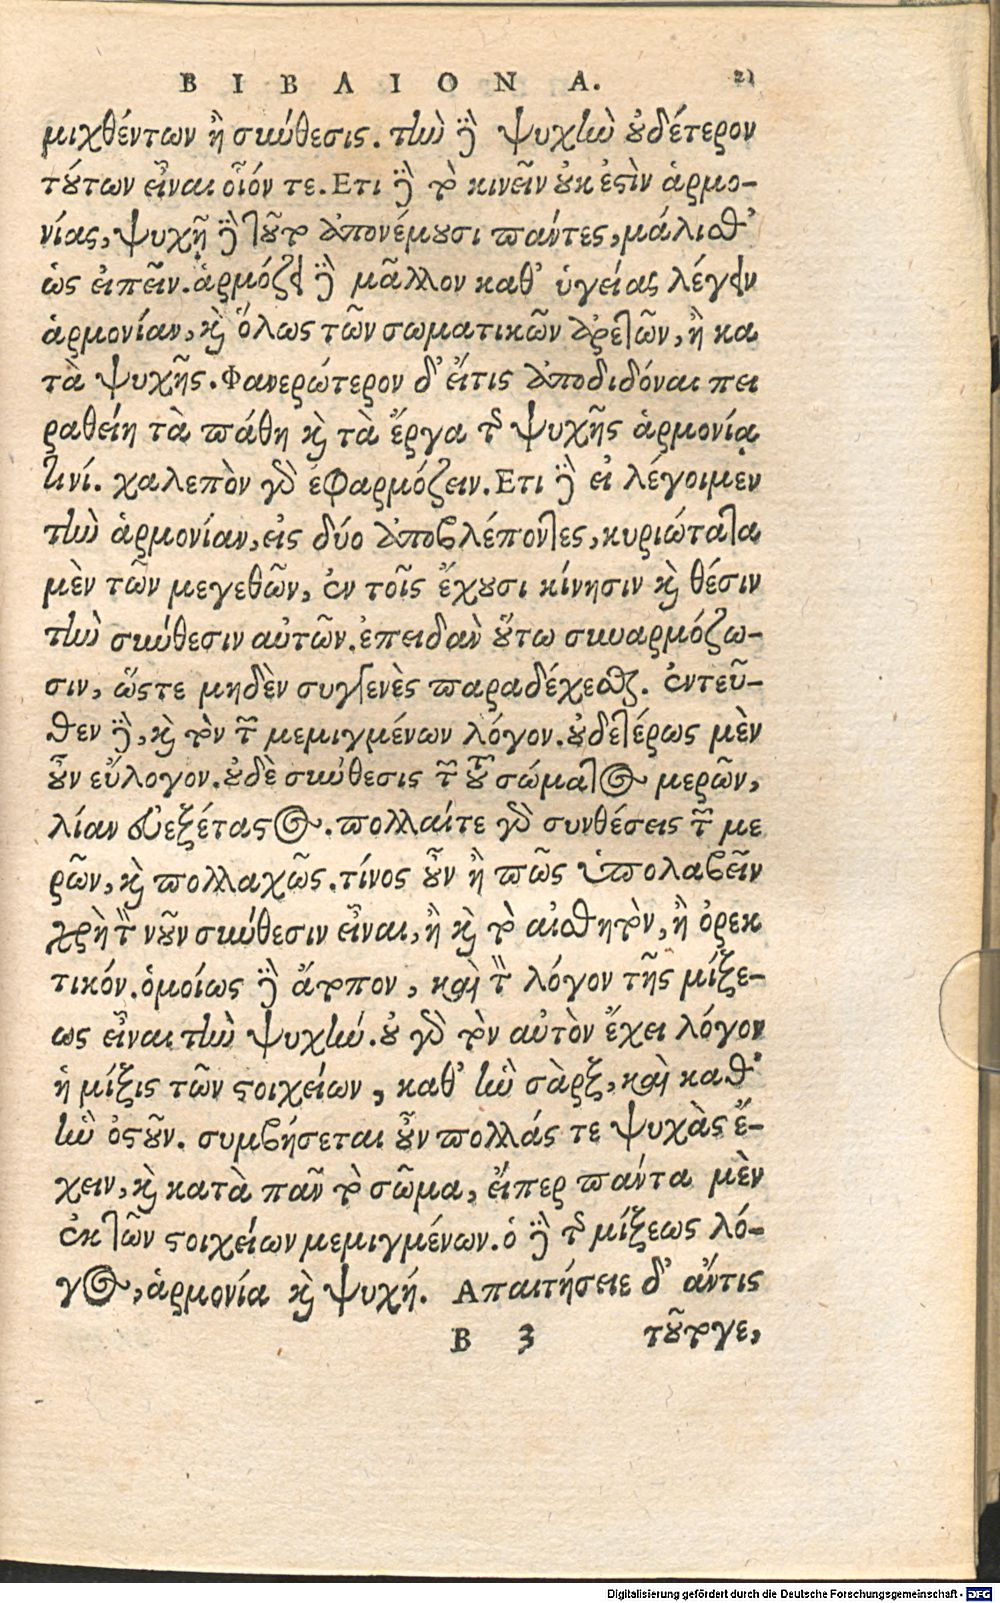 ΒΙΒΛΙΟΝ Α. 21
μιχθέντων ἢ σύνθεσις. τὴν δὲ ψυχὴν οὐδέτερον
τούτων εἶναι οἷόν τε. Ετι δὲ τὸ κινεῖν οὐκ ἐστὶν ἁρμο-
νίας, ψυχῇ δὲ τοῦτο ἀπονέμουσι πάντες, μάλισθ’
ὡς εἰπεῖν. ἁρμόζει δὲ μᾶλλον καθ’ ὑγείας λέγειν
ἁρμονίαν, καὶ ὅλως τῶν σωματικῶν ἀρετῶν, ἢ κα
τὰ ψυχῆς. Φανερώτερον δ’ εἴτις ἀποδιδόναι πει
ραθείη τὰ πάθη καὶ τὰ ἔργα τῆς ψυχῆς ἁρμονίᾳ
τινί. χαλεπὸν γὰρ ἐφαρμόζειν. Ετι δὲ εἰ λέγοιμεν
τὴν ἁρμονίαν, εἰς δύο ἀποβλέποντες, κυριώτατα
μὲν τῶν μεγεθῶν, ἐν τοῖς ἔχουσι κίνησιν καὶ θέσιν
τὴν σύνθεσιν αὐτῶν. ἐπειδὰν οὕτω συναρμόζω-
σιν, ὥστε μηδὲν συγγενὲς παραδέχεσθαι. ἐντεῦ-
θεν δὲ, καὶ τὸν τῶν μεμιγμένων λόγον. οὐδετέρως μὲν
οὖν εὔλογον. οὐδὲ σύνθεσις τῶν τοῦ σώματος μερῶν,
λίαν εὐεξέταστος. πολλαίτε γὰρ συνθέσεις τῶν με
ρῶν, καὶ πολλαχῶς. τίνος οὖν ἢ πῶς ὑπολαβεῖν
χρὴ τὸν νοῦν σύνθεσιν εἶναι, ἢ καὶ τὸ αἰσθητὸν, ἢ ὀρεκ
τικόν. ὁμοίως δὲ ἄτοπον, καὶ τὸν λόγον τῆς μίξε-
ως εἶναι τὴν ψυχήν. οὐ γὰρ τὸν αὐτὸν ἔχει λόγον
ἡ μίξις τῶν στοιχείων, καθ’ ἣν σὰρξ, καὶ καθ’
ἣν ὀστοῦν. συμβήσεται οὖν πολλάς τε ψυχὰς ἔ-
χειν, καὶ κατὰ πᾶν τὸ σῶμα, εἴπερ πάντα μὲν
ἐκ τῶν στοιχείων μεμιγμένων. ὁ δὲ τῆς μίξεως λό-
γος, ἁρμονία καὶ ψυχή. Απαιτήσειε δ’ ἄντις
Β 3 τοῦτογε,
Digitalisierung gefördert durch die Deutsche Forschungsgemeinschaft - DFG